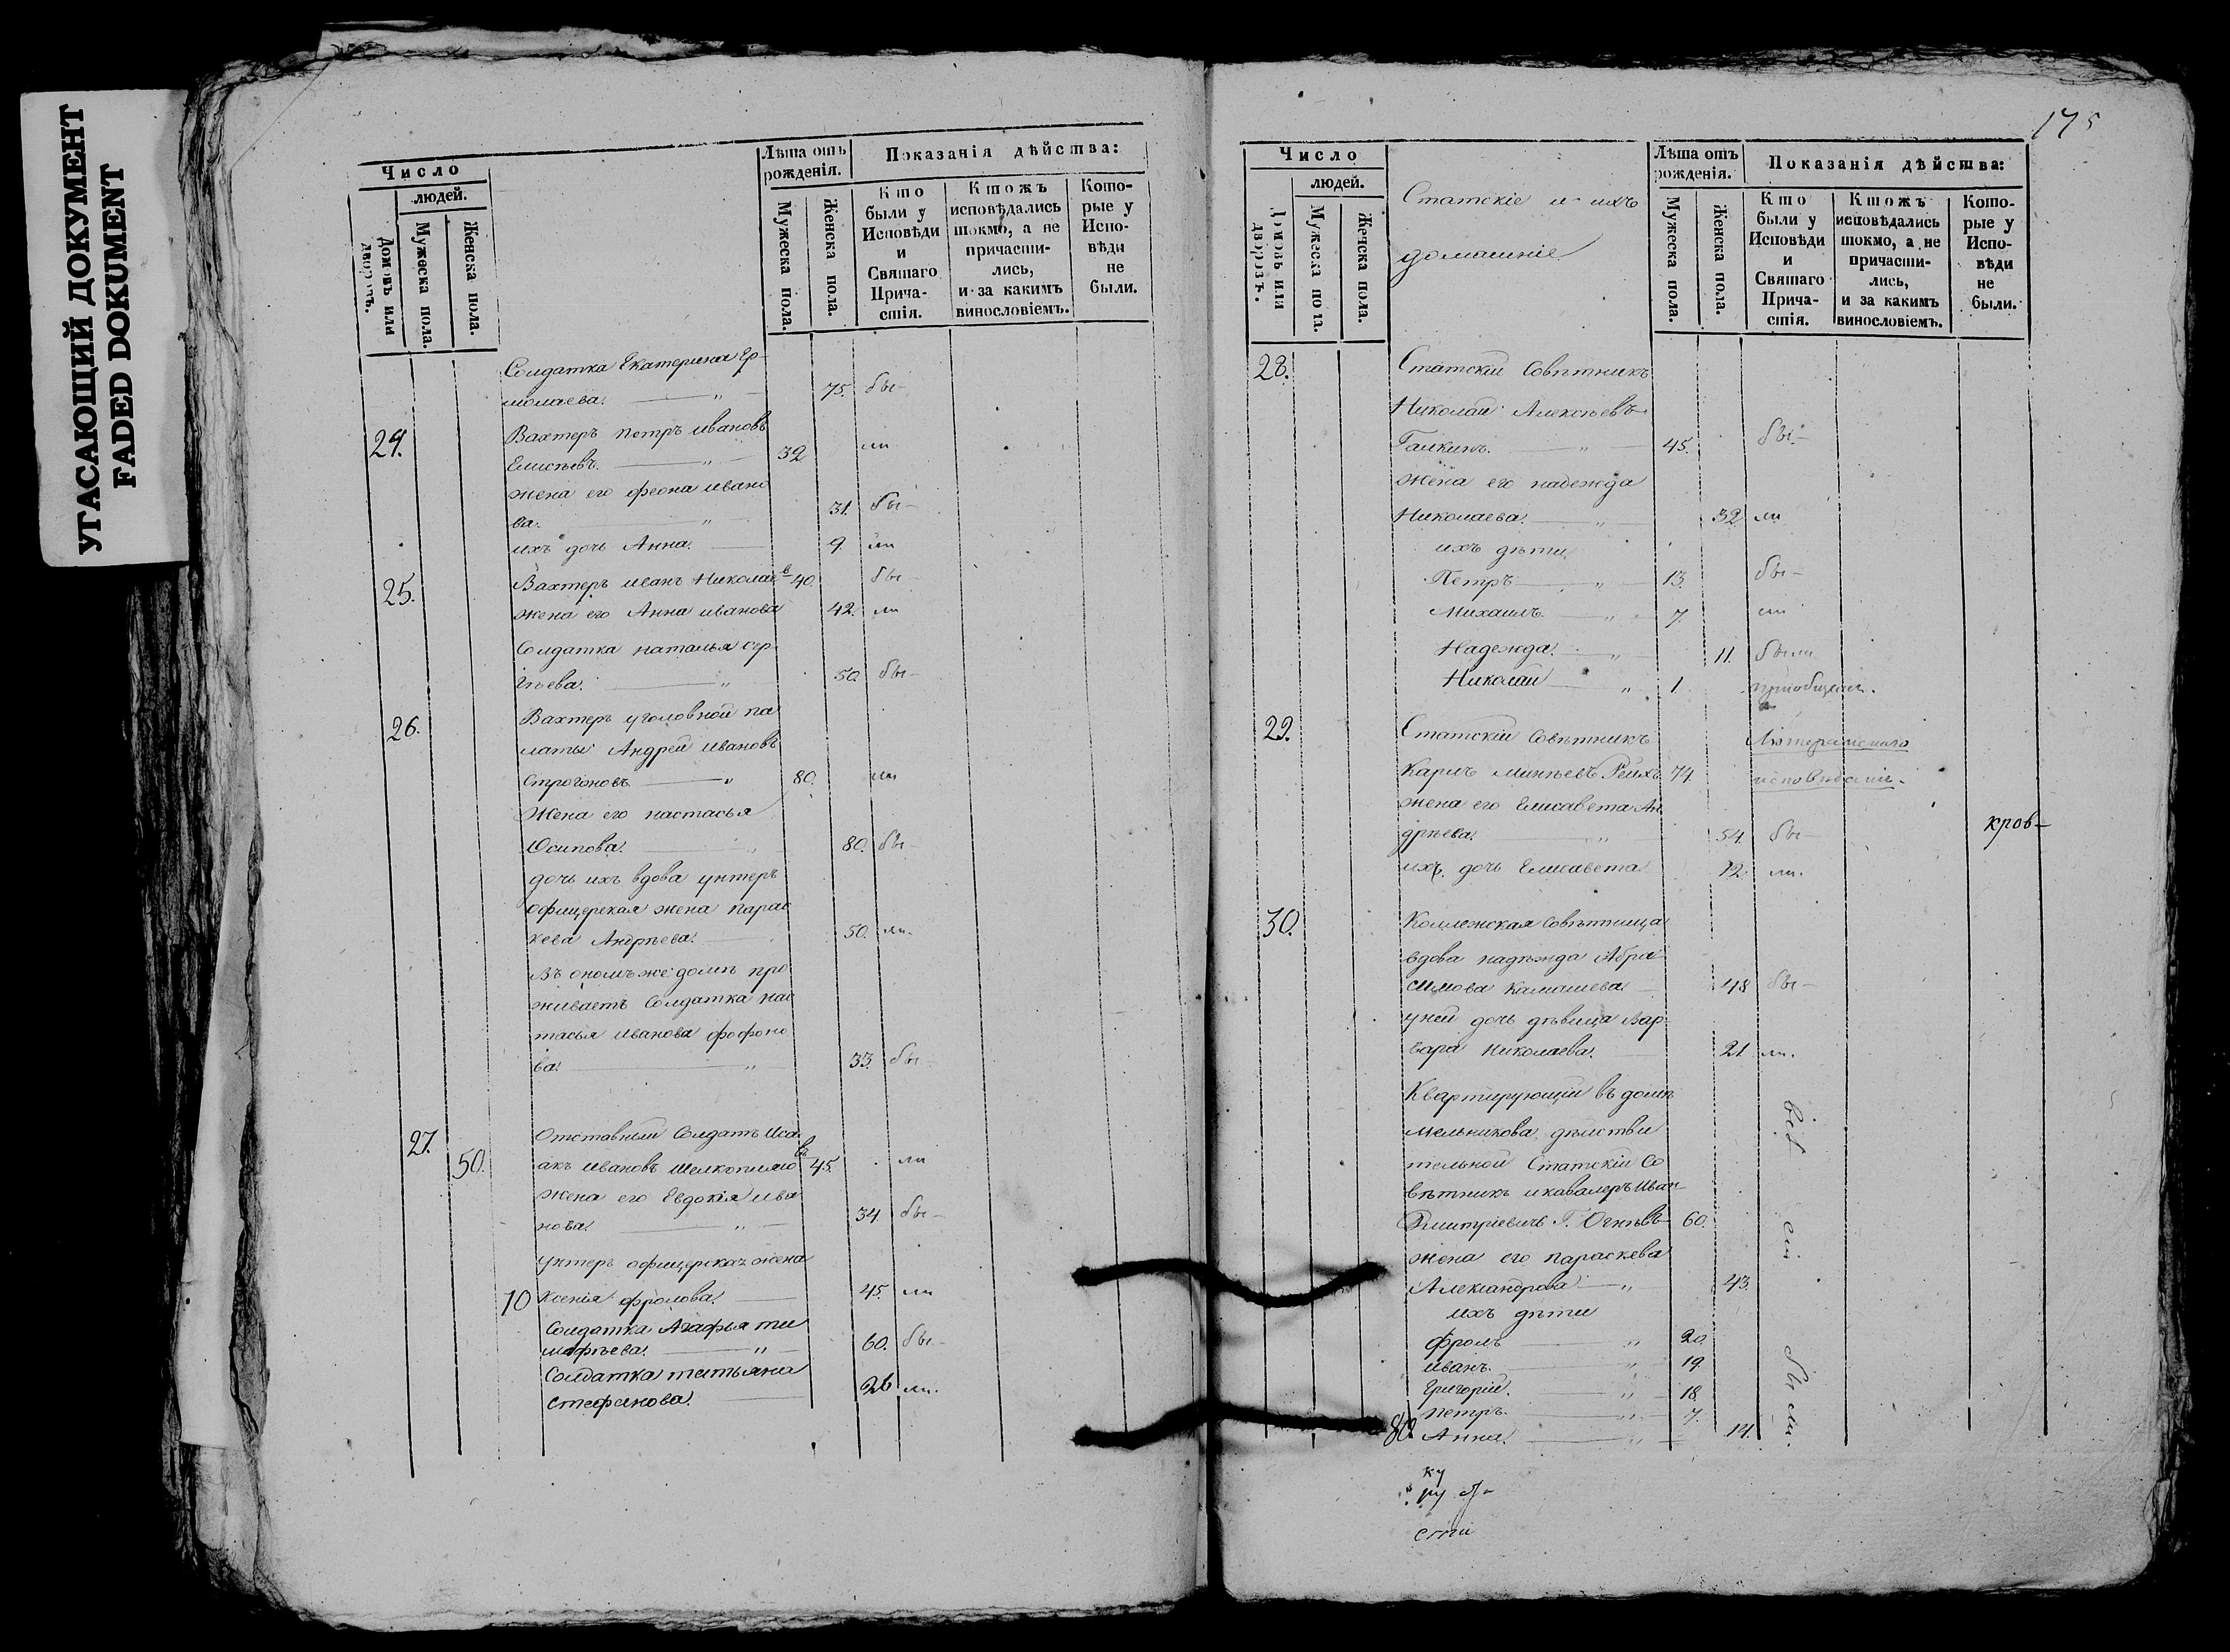 УТАСАЮЩИЙ ДОКУМЕНТ
FADED DOKUMENT
Число
людей.
Домовъ или дворовъ.
Мужеска пола.
Женска пола.
Лѣта отъ рожденія.
Мужеска пола.
Женска пола.
Показанія дѣйства:
Кто были у Исповѣди и Святаго Прича- стія.
Ктожъ исповѣдались токмо, а не причасти- лись, и за какимъ винословіемъ.
Кото- рые у Испо- вѣди не были.
Солдатка Екатерина Ер-
молаева. 75. бы-
24. Вахтеръ Петръ Ивановъ
Елисѣевъ. 39 ли
жена его Феона Ивано
ва. 31. бы-
ихъ дочь Анна. 9. ли
25. Вахтеръ Иванъ Николаевъ 40. бы-
жена его Анна Иванова 42. ли
Солдатка Наталья Сер-
гѣева. 50. бы-
26. Вахтеръ уголовной па
латы Андрей Ивановъ
Строгоновъ 80. ли
Жена его Настасья
Осипова. 80. бы-
дочь ихъ вдова унтеръ
офицерская жена Парас
кева Андрѣева. 50. ли.
Въ ономъ же домѣ про
живаетъ Солдатка Нас
тасья Иванова Фофоно
ва. 33. бы-
27. Отставный Солдатъ Иса
50. акъ Ивановъ Шелкопляс­овъ 45. ли
жена его Евдокія Ива
нова. 34. бы-
унтеръ офицерская жена
70 Ксенія Фролова. 45. ли
Солдатка Агафья Ти
мофѣева. 60. бы-
Солдатка Татьяна
Стефанова. 26 ли.
175
Число
людей.
Домовъ или дворовъ.
Мужеска пола.
Женска пола.
Статскіе и ихъ
домашніе
Лѣта отъ рожденія.
Мужеска пола.
Женска пола.
Показанія дѣйства:
Кто были у Исповѣди и Святаго Прича- стія.
Ктожъ исповѣдались токмо, а не причасти- лись, и за какимъ винословіемъ.
Кото- рые у Испо- вѣди не были.
28. Статскій Совѣтникъ
Николай Алексѣевъ
Галкинъ. 45. бы-
Жена его Надежда
Николаева. 32 ли
ихъ дѣти
Петръ 13. бы-
Михаилъ. 7. ли
Надежда. 11. были
Николай 1 приобщенъ.
29. Статскій Совѣтникъ Лютеранскаго
Карлъ Рейхъ 74. исповѣданія.
жена его Елисавета Ан
дрѣева. 54. бы- кров-
ихъ дочь Елисавета 12 ли.
30. Коллежская Совѣтница
вдова Надежда
симова Камашева 48 бы-
у ней дочь дѣвица Вар
вара Николаева. 21 ли.
Квартирующій въ домѣ
Мельникова дѣйстви
тельной Статскій Со
вѣтникъ и кавалеръ Иван
Дмитріевичъ Г. Огнѣвъ 60.
жена его Параскева
Александрова 43.
ихъ дѣти
Фролъ 20.
Иванъ. 19.
Григорій. 18
Петръ. 7.
80. Анна. 14.
всѣ сіи были.
ку
сти